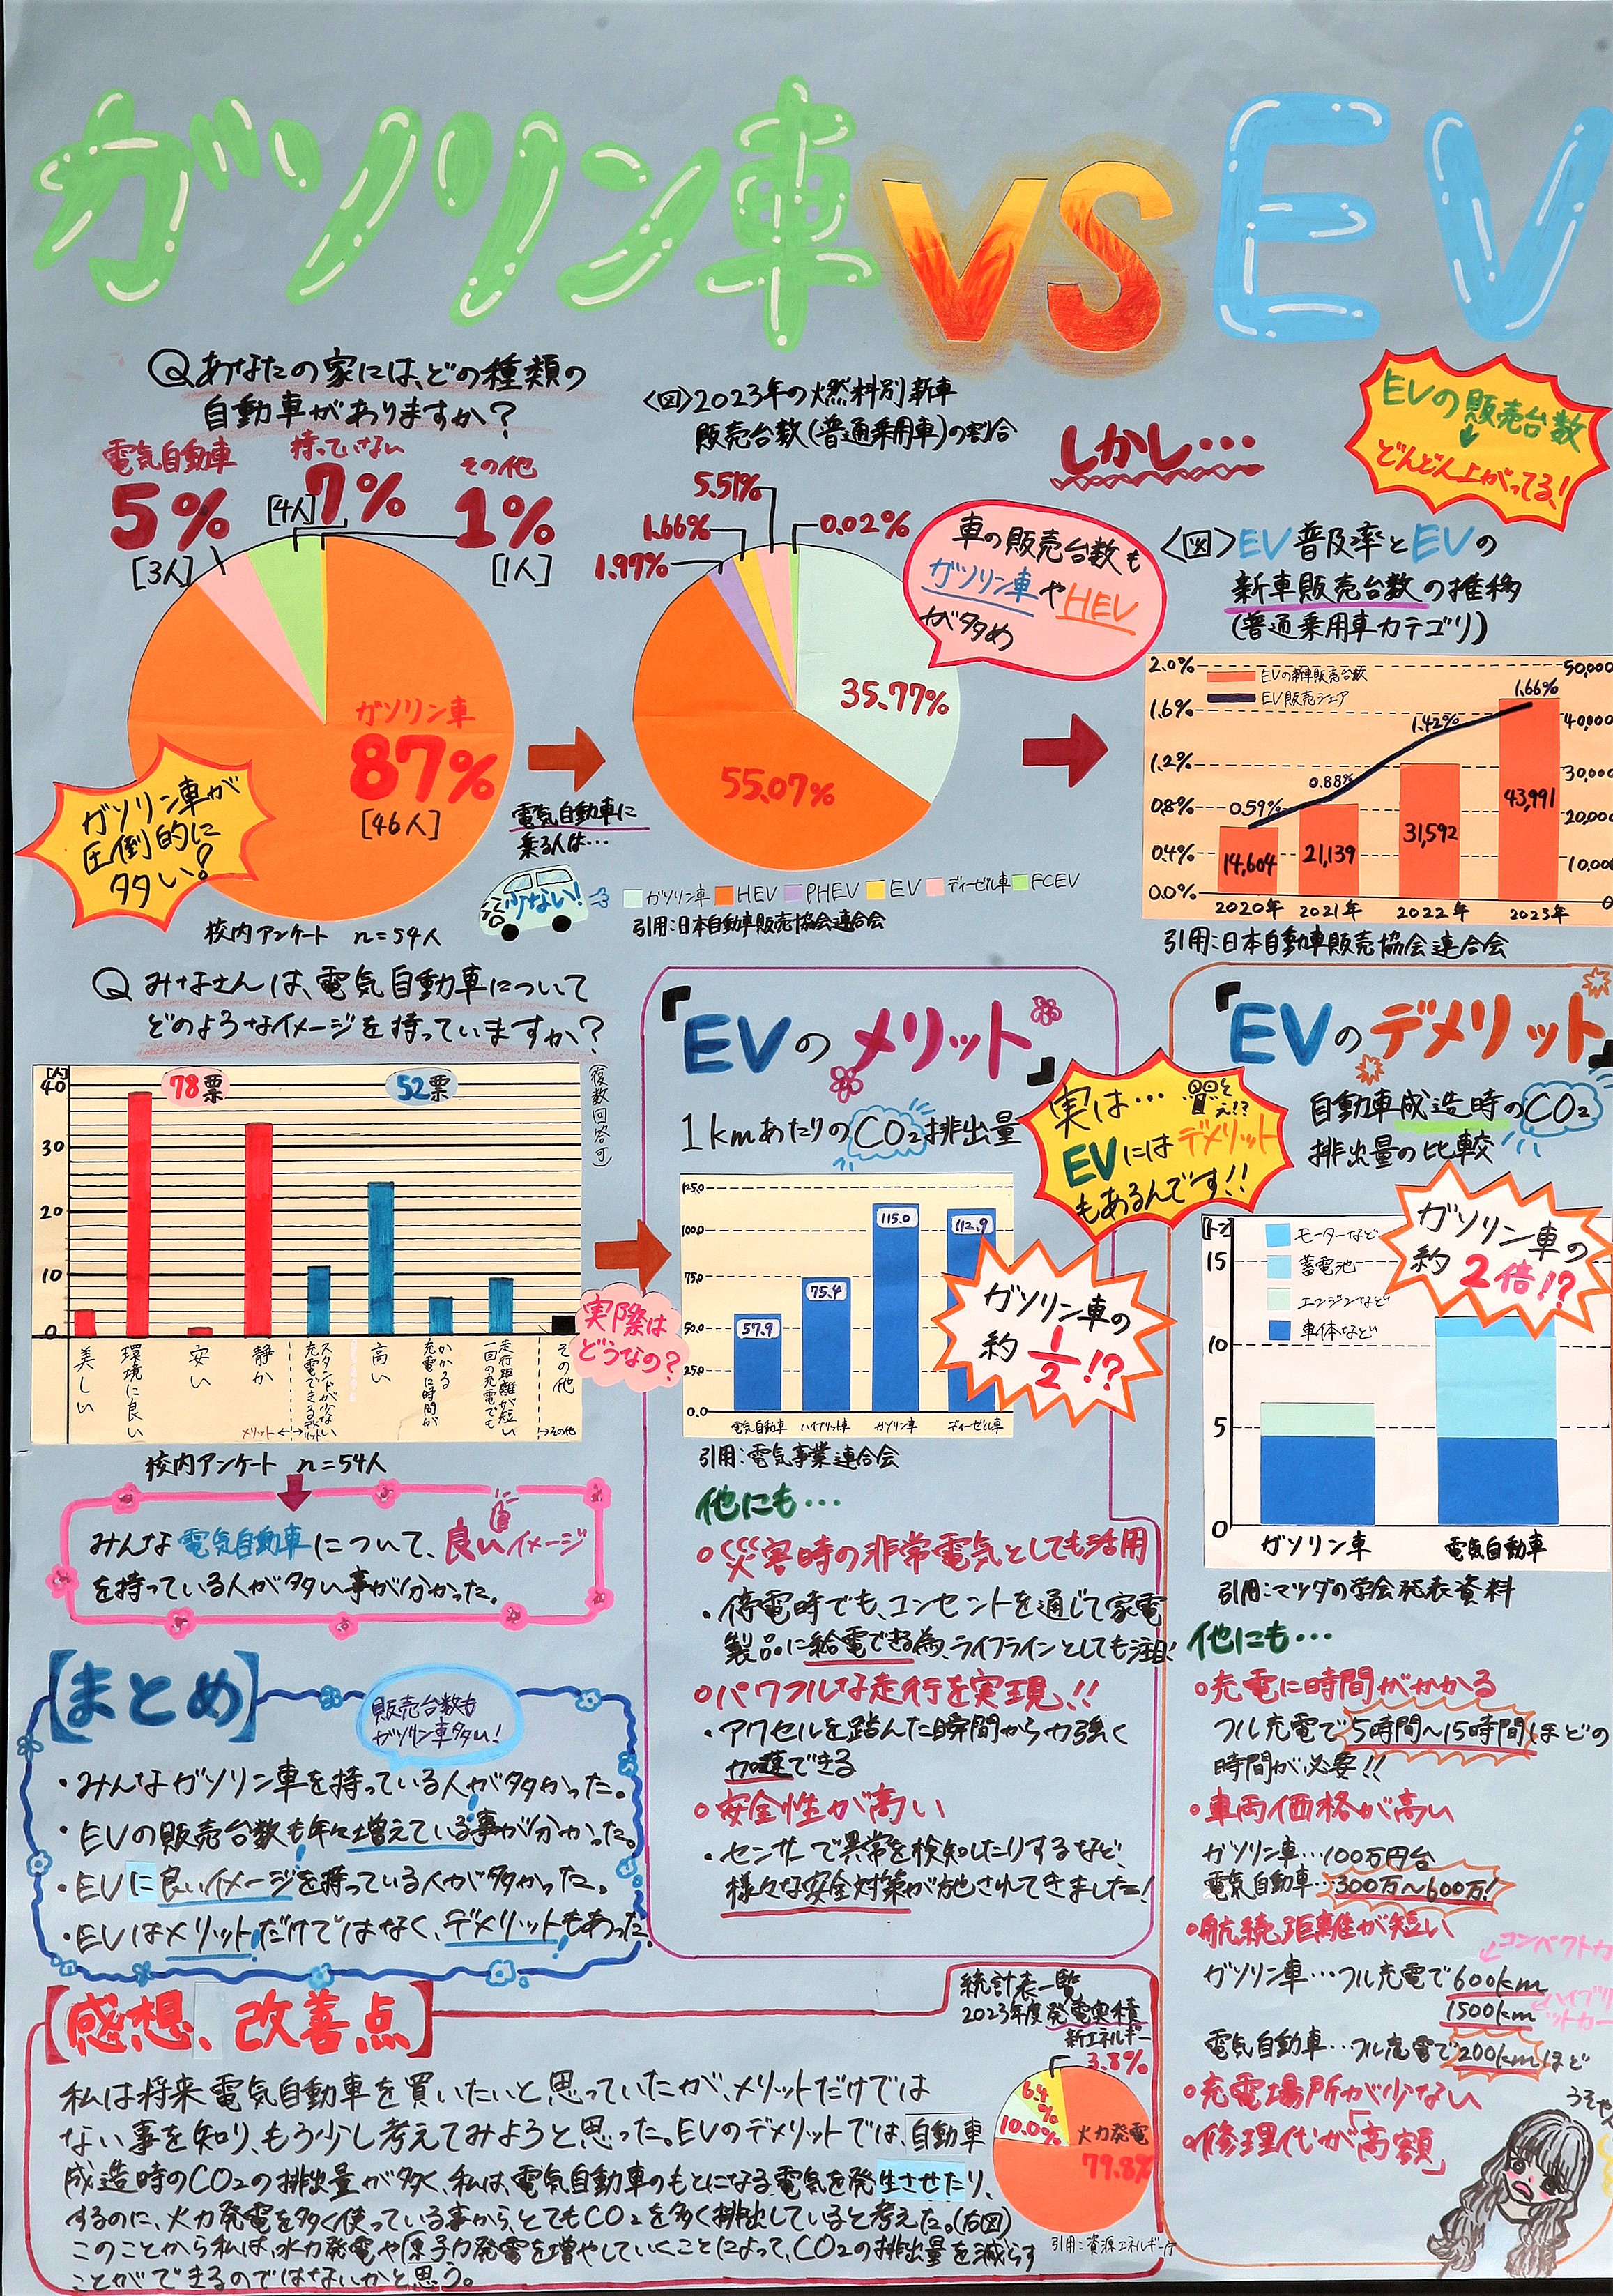 ガソリン車 VS EV
Qあなたの家には、どの種類の
自動車がありますか?
電気自動車
5%
[3人]
持っていない
7%
[4人]
その他
1%
[1人]
ガソリン車
87%
[46人]
ガソリン車が
圧倒的に
多い!
校内アンケート n=54人
電気自動車に
乗る人は…
少ない!
〈図〉2023年の燃料別新車
販売台数(普通乗用車)の割合
5.51%
1.66%
1.97%
0.02%
35.77%
55.07%
ガソリン車 HEV PHEV EV ディーゼル車 FCEV
引用:日本自動車販売協会連合会
車の販売台数も
ガソリン車やHEV
が多め
しかし…
EVの販売台数
↓
どんどん上がってる!
〈図〉EV普及率とEVの
新車販売台数の推移
(普通乗用車カテゴリ)
EVの新車販売台数
EV販売シェア
2.0%
1.6%
1.2%
0.8%
0.4%
0.0%
50,000
40,000
30,000
20,000
10,000
0
0.59%
0.88%
1.42%
1.66%
14,604
21,139
31,592
43,991
2020年 2021年 2022年 2023年
引用:日本自動車販売協会連合会
Q みなさんは、電気自動車について
どのようなイメージを持っていますか?
(複数回答可)
[人]
40
30
20
10
0
78票
52票
美しい
環境に良い
安い
静か
スタンドが少ない
高い
充電に時間が
かかる
一回の充電でも
走行距離が短い
その他
メリット←
→その他
校内アンケート n=54人
実際は
どうなの?
みんな電気自動車について、良いイメージ
を持っている人が多い事が分かった。
「EVのメリット」
1kmあたりのCO₂排出量
125.0
100.0
75.0
50.0
25.0
0.0
57.9
75.4
115.0
112.9
電気自動車 ハイブリット車 ガソリン車 ディーゼル車
引用:電気事業連合会
ガソリン車の
約1/2!?
実は…
え!?
EVにはデメリット
もあるんです!!
他にも…
○災害時の非常電気としても活用
・停電時でも、コンセントを通じて家電
製品に給電できる為、ライフラインとしても注目!
○パワフルな走行を実現!!
・アクセルを踏んだ瞬間から力強く
加速できる
○安全性が高い
・センサーで異常を検知したりするなど、
様々な安全対策が施されてきました!
「EVのデメリット」
自動車成造時のCO₂
排出量の比較
[トン]
15
10
5
0
モーターなど
蓄電池
エンジンなど
車体など
ガソリン車の
約2倍!?
ガソリン車 電気自動車
引用:マツダの学会発表資料
他にも…
○充電に時間がかかる
フル充電で5時間~15時間ほどの
時間が必要!!
○車両価格が高い
ガソリン車…100万円台
電気自動車…300万~600万!
○航続距離が短い
コンパクトカ
ガソリン車…フル充電で600km
1500km
ハイブリ
ットカー
電気自動車…フル充電で200kmほど
○充電場所が少ない
○修理代が「高額」
【まとめ】
販売台数も
ガソリン車多い!
・みんなガソリン車を持っている人が多かった。
・EVの販売台数も年々増えている事が分かった。
・EVに良いイメージを持っている人が多かった。
・EVはメリットだけではなく、デメリットもあった。
【感想、改善点】
私は将来電気自動車を買いたいと思っていたが、メリットだけでは
ない事を知り、もう少し考えてみようと思った。EVのデメリットでは、自動車
成造時のCO₂の排出量が多く、私は、電気自動車のもとになる電気を発生させたり、
するのに、火力発電を多く使っている事から、とてもCO₂を多く排出していると考えた。(右図)
このことから私は、水力発電や原子力発電を増やしていくことによって、CO₂の排出量を減らす
ことができるのではないかと思う。
統計表一覧
2023年度発電実績
新エネルギー
3.8%
6.4%
10.0%
火力発電
79.8%
引用:資源エネルギー庁